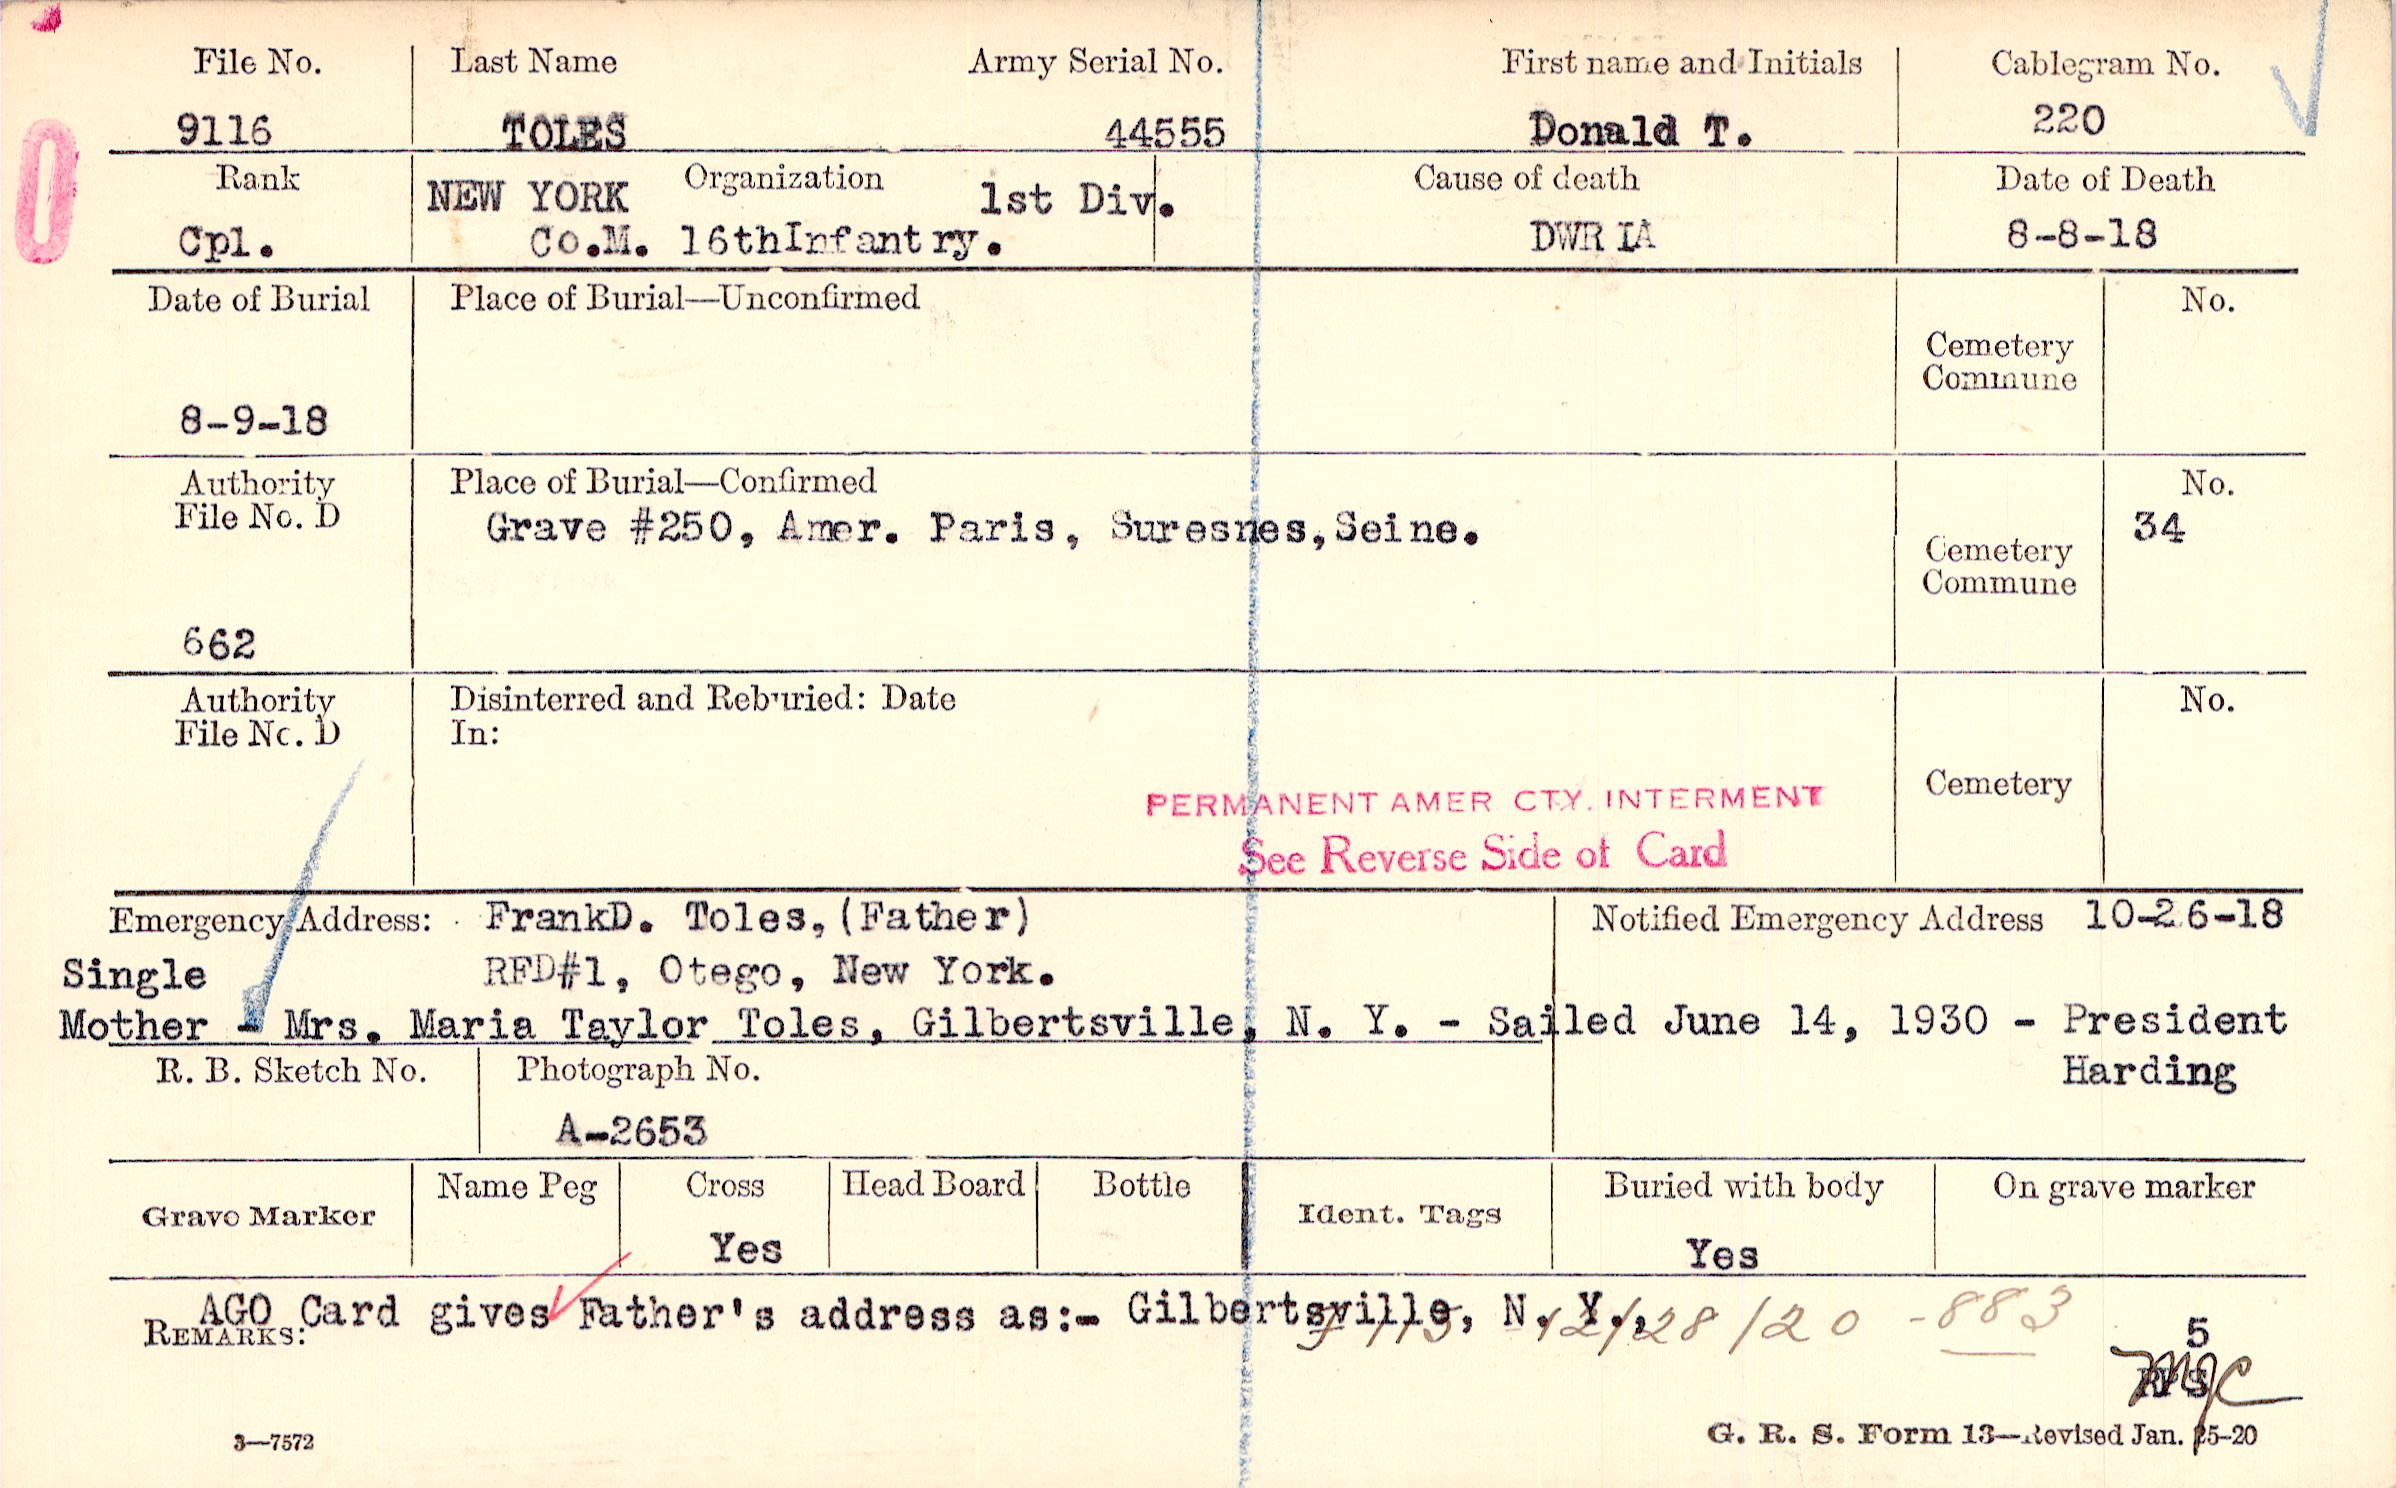 File No. Last Name Army Serial No. First name and Initials Cablegram No.
9116 TOLES 44555 Donald T. 220
Rank Organization Cause of death Date of Death
NEW YORK 1st Div.
Cpl. Co.M. 16thInfantry. DWRIA 8-8-18
Date of Burial Place of Burial—Unconfirmed No.
Cemetery
Commune
8-9-18
Authority Place of Burial—Confirmed No.
File No. D Grave #250, Amer. Paris, Suresnes,Seine. 34
Cemetery
Commune
662
Authority Disinterred and Reburied: Date No.
File No. D In:
Cemetery
PERMANENT AMER CTY. INTERMENT
See Reverse Side of Card
Emergency Address: FrankD. Toles,(Father) Notified Emergency Address 10-26-18
Single RFD#1, Otego, New York.
Mother - Mrs. Maria Taylor Toles, Gilbertsville, N. Y. - Sailed June 14, 1930 - President
Harding
R. B. Sketch No. Photograph No.
A-2653
Grave Marker Name Peg Cross Head Board Bottle Ident. Tags Buried with body On grave marker
Yes Yes
AGO Card gives Father's address as:- Gilbertsville, N. Y.,
REMARKS: 12/28/20 -883
5
MJC
3—7572 G. R. S. Form 13—Revised Jan. 25-20